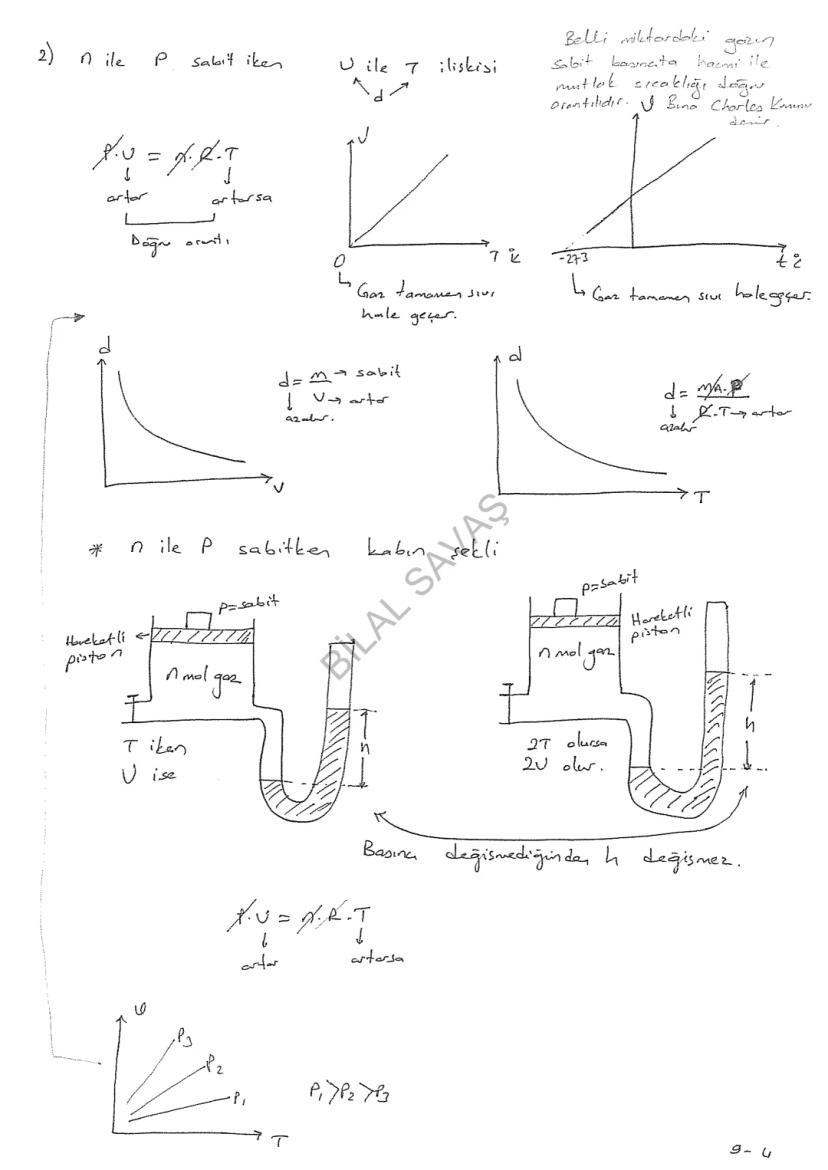 2) n ile P sabit iken
V ile T ilişkisi
d
Belli miktardaki gazın
sabit basınçta hacmi ile
mutlak sıcaklığı doğru
orantılıdır. Buna Charles Kanunu
denir.
P.V = n.R.T
artar
artarsa
Doğru orantı
V
0
T °K
Gaz tamamen sıvı
hale geçer.
V
-273
t °C
Gaz tamamen sıvı hale geçer.
d
V
d = m → sabit
V → artar
azalır.
d
T
d = MA.P
R.T → artar
azalır
* n ile P sabitken kabın şekli
BİLAL SAVAŞ
P=sabit
Hareketli
piston
n mol gaz
T iken
V ise
h
P=sabit
Hareketli
piston
n mol gaz
2T olursa
2V olur.
h
Basınç değişmediğinden h değişmez.
P.V = n.R.T
artar
artarsa
V
P3
P2
P1
T
P1>P2>P3
9-4